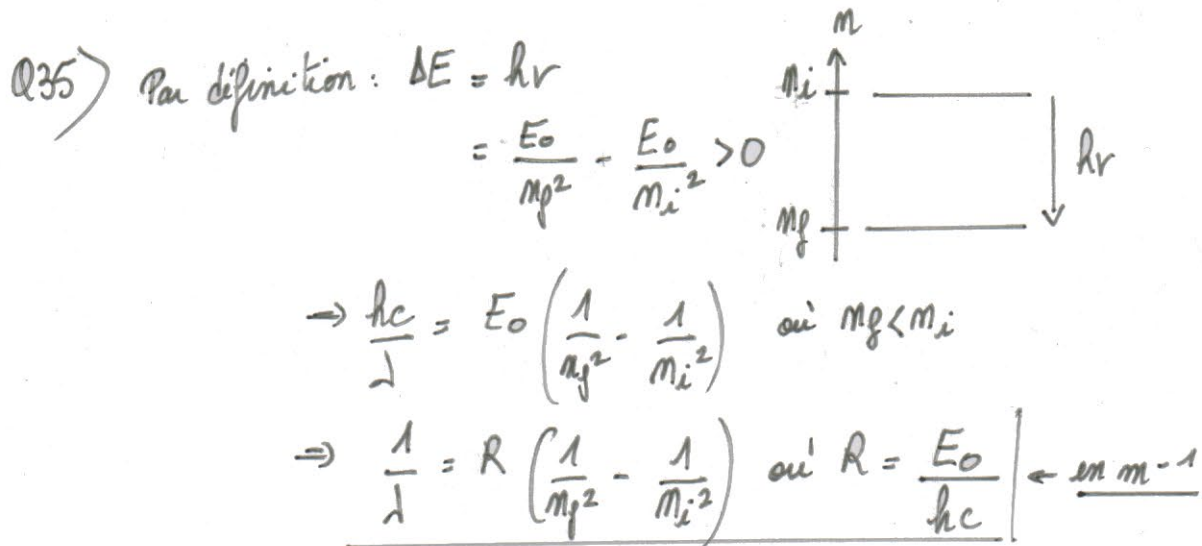 Q35) Par définition : ΔE = hν
= E₀/n_f² - E₀/n_i² > 0
n
n_i
hν
n_f
⇒ hc/λ = E₀ (1/n_f² - 1/n_i²) où n_f < n_i
⇒ 1/λ = R (1/n_f² - 1/n_i²) où R = E₀/hc ← en m⁻¹